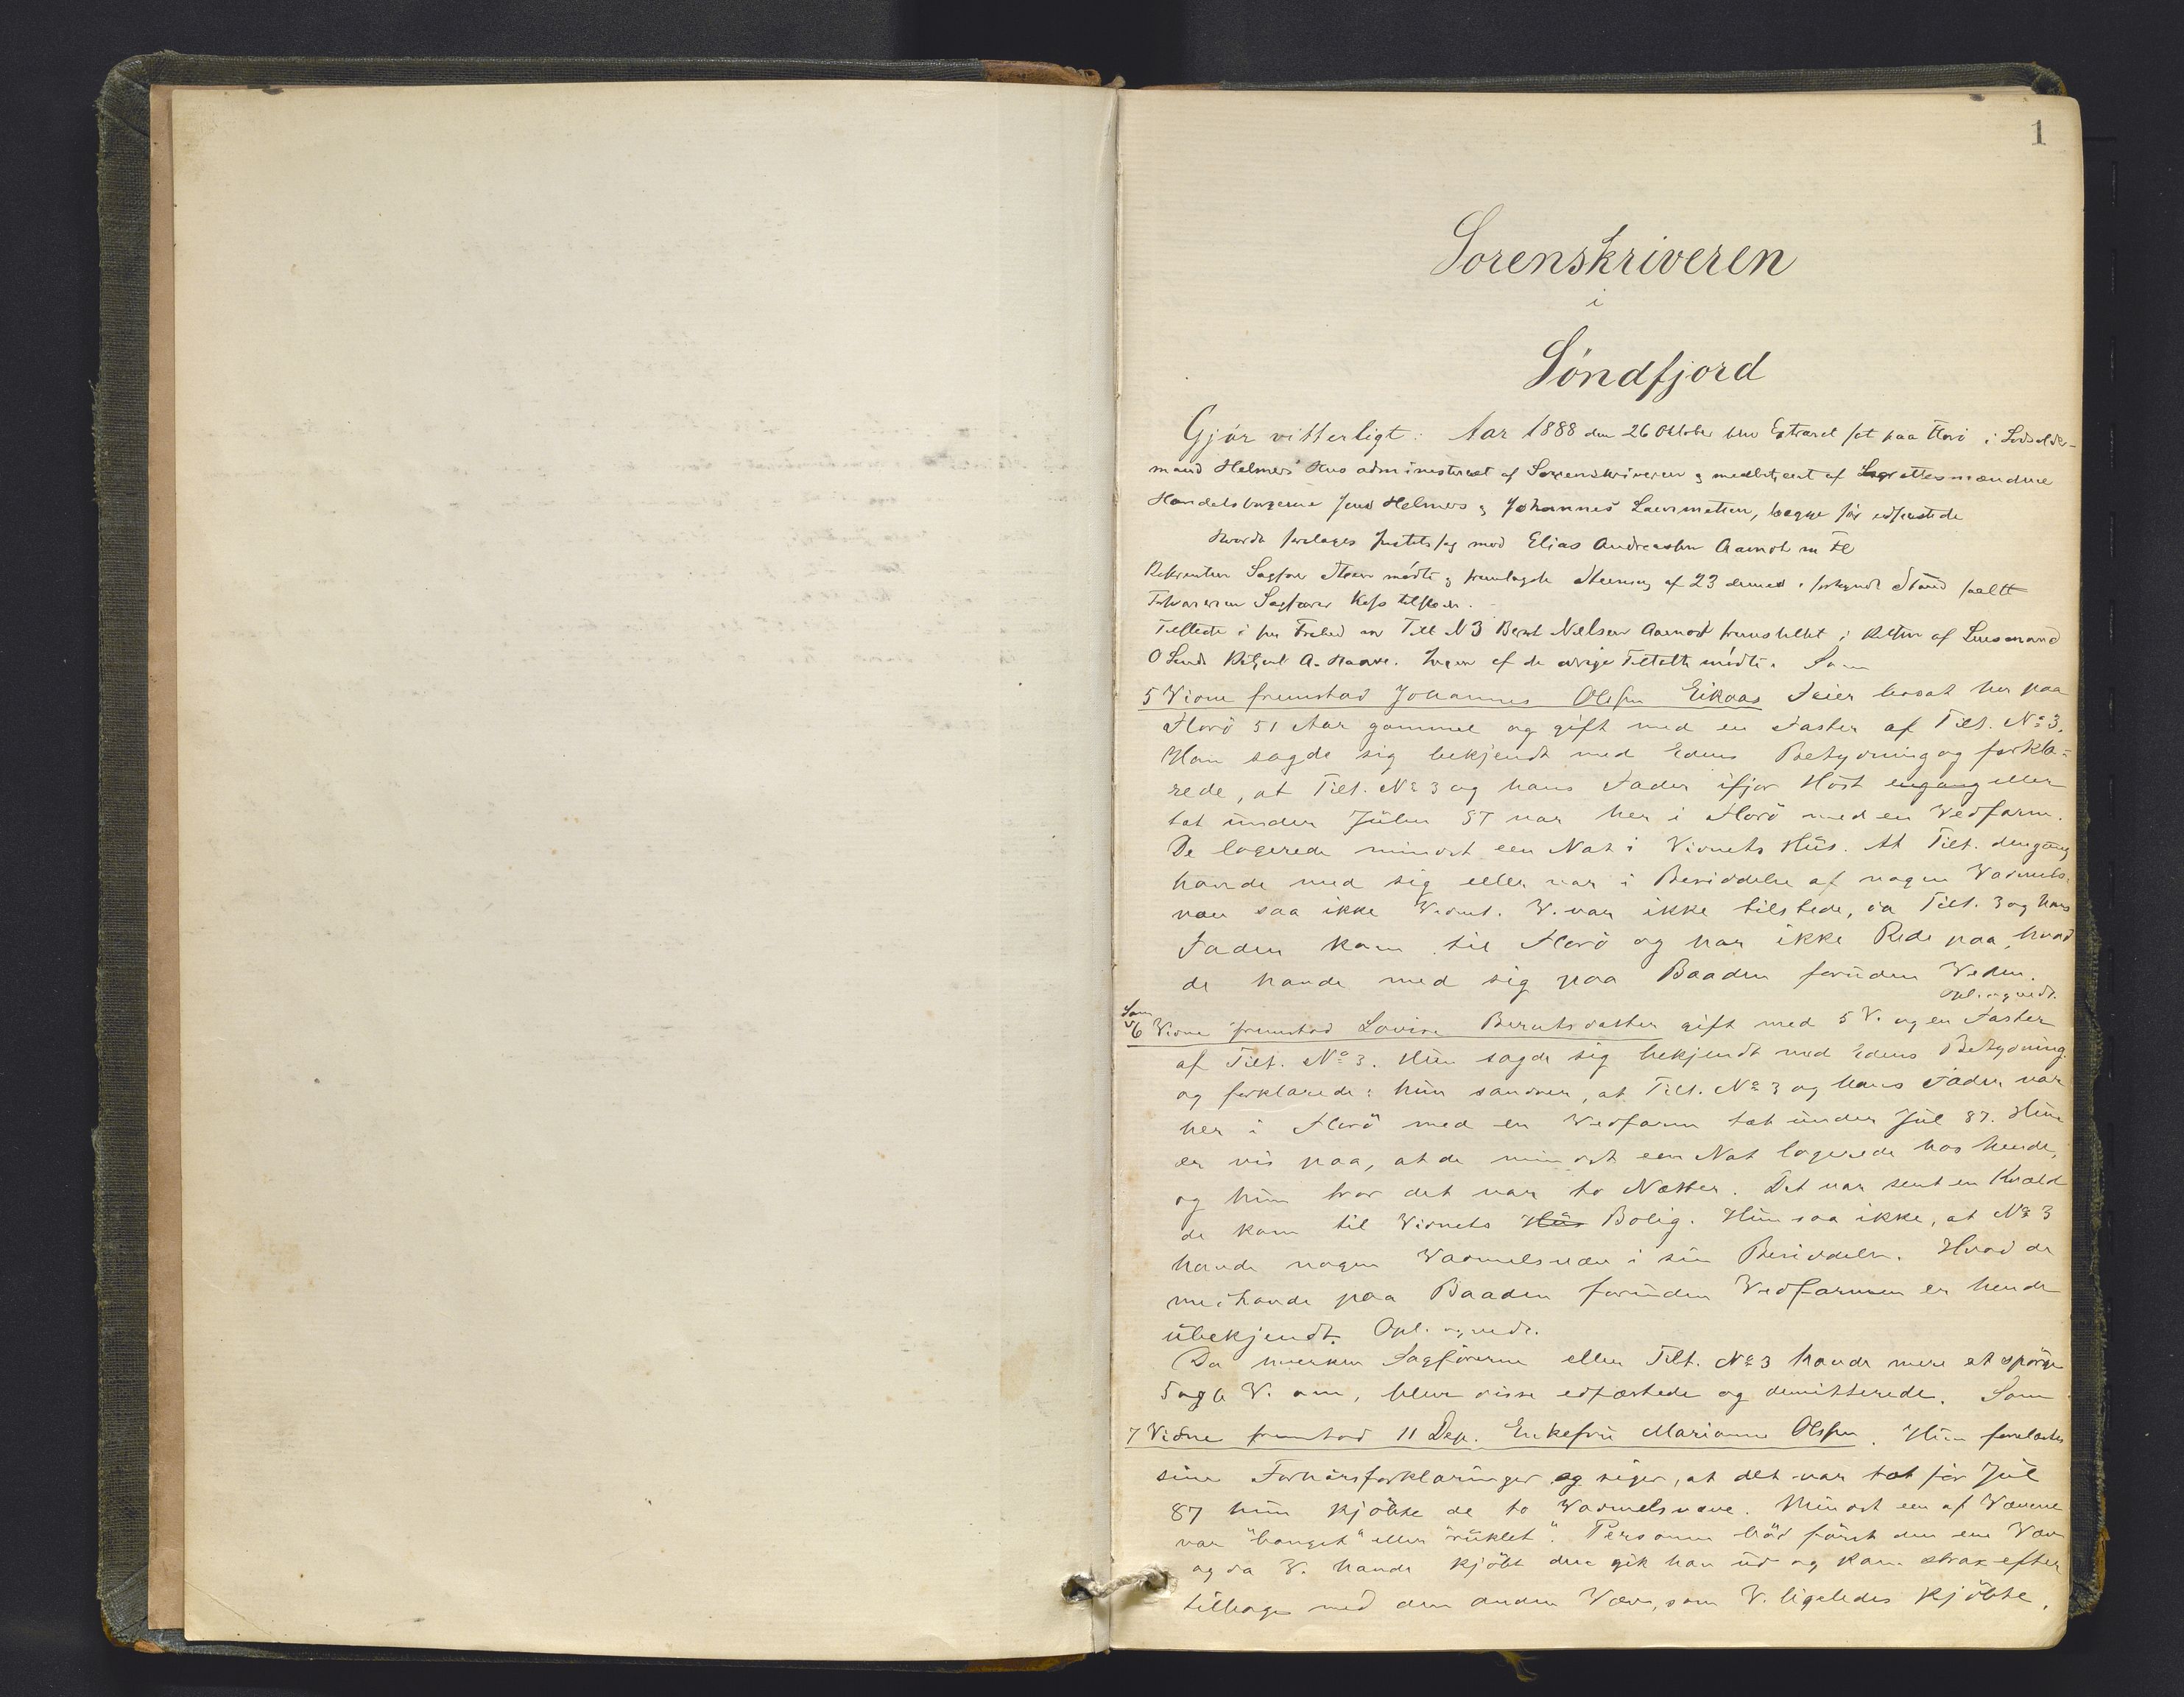 1
Sorenskriveren
i
Söndfjord
Gjör vitterligt: Aar 1888 den 26 Oktober blev Extraret sat paa Florö i Lodsolder-
mand Helmers Hus administreret af Sorenskriveren & medbetjent af Lagrettesmændene
Handelsborgerne Jens Helmers & Johannes Laurmetten, begge för edfæstede
Hvorda foretages Justitssag mod Elias Andreassen Aamot m Fl
Rekvirenten Sagförer mödte & fremlagde Stevning af 23 dennes i forkyndt Stand
Forsvareren Sagförer tilstede.
Tilstede i fri Tilt N 3 Bernt Nilsen Aamot fremstillet i Retten af Lensmand
O Sunde A. Haave. Ingen af de övrige Tiltalte mödte. Som
5 Vidne fremstod Johannes Olsen Eikaas Feier bosat her paa
Florö 51 Aar gammel og gift med en Faster af Tilt. No 3.
Han sagde sig bekjendt med Edens Betydning og forkla-
rede, at Tilt. No 3 og hans Fader ifjor Höst engang eller
tæt under Julen 87 var her i Florö med en Vedfarm.
De logerede mindst een Nat i Vidnets Hus. At Tilt. dengang
havde med sig eller var i Besiddelse af nogen Vadmels-
væv saa ikke Vidnet. V. var ikke tilstede, da Tilt. 3 og hans
Fader kom til Florö og har ikke Rede paa, hvad
de havde med sig paa Baaden foruden Veden.
Opl. og vedt.
Som
6 Vidne fremstod Lovise Berntsdatter gift med 5 V. og en Faster
af Tilt. No 3. Hun sagde sig bekjendt med Edens Betydning
og forklarede: hun sandser, at Tilt. No 3 og hans Fader var
her i Florö med en Vedfarm tæt under Jul 87. Hun
er vis paa, at de mindst een Nat logerede hos hende,
og hun tror det var to Nætter. Det var sent en Kvæld
de kom til Vidnets Hus Bolig. Hun saa ikke, at No 3
havde nogen Vadmelsvæv i sin Besiddelse. Hvad de
medhavde paa Baaden foruden Vedfarmen er hende
ubekjendt. Opl. og vedt.
Da hverken Sagförerne eller Tilt. No 3 havde mere at spörge
5 og 6 V. om, blev disse edfæstede og demitterede. Som
7 Vidne fremstod 11 Dep. Enkefru Marianne Olsen. Hun forelæstes
sine Forhörsforklaringer og siger, at det var tæt för Jul
87 hun kjöbte de to Vadmelsvæve. Mindst een af Vævene
var "banget" eller "ruklet". Personen böd först den ene Væv
og da V. havde kjöbt den gik han ud og kom strax efter
tilbage med den anden Væv, som V. ligeledes kjöbte.